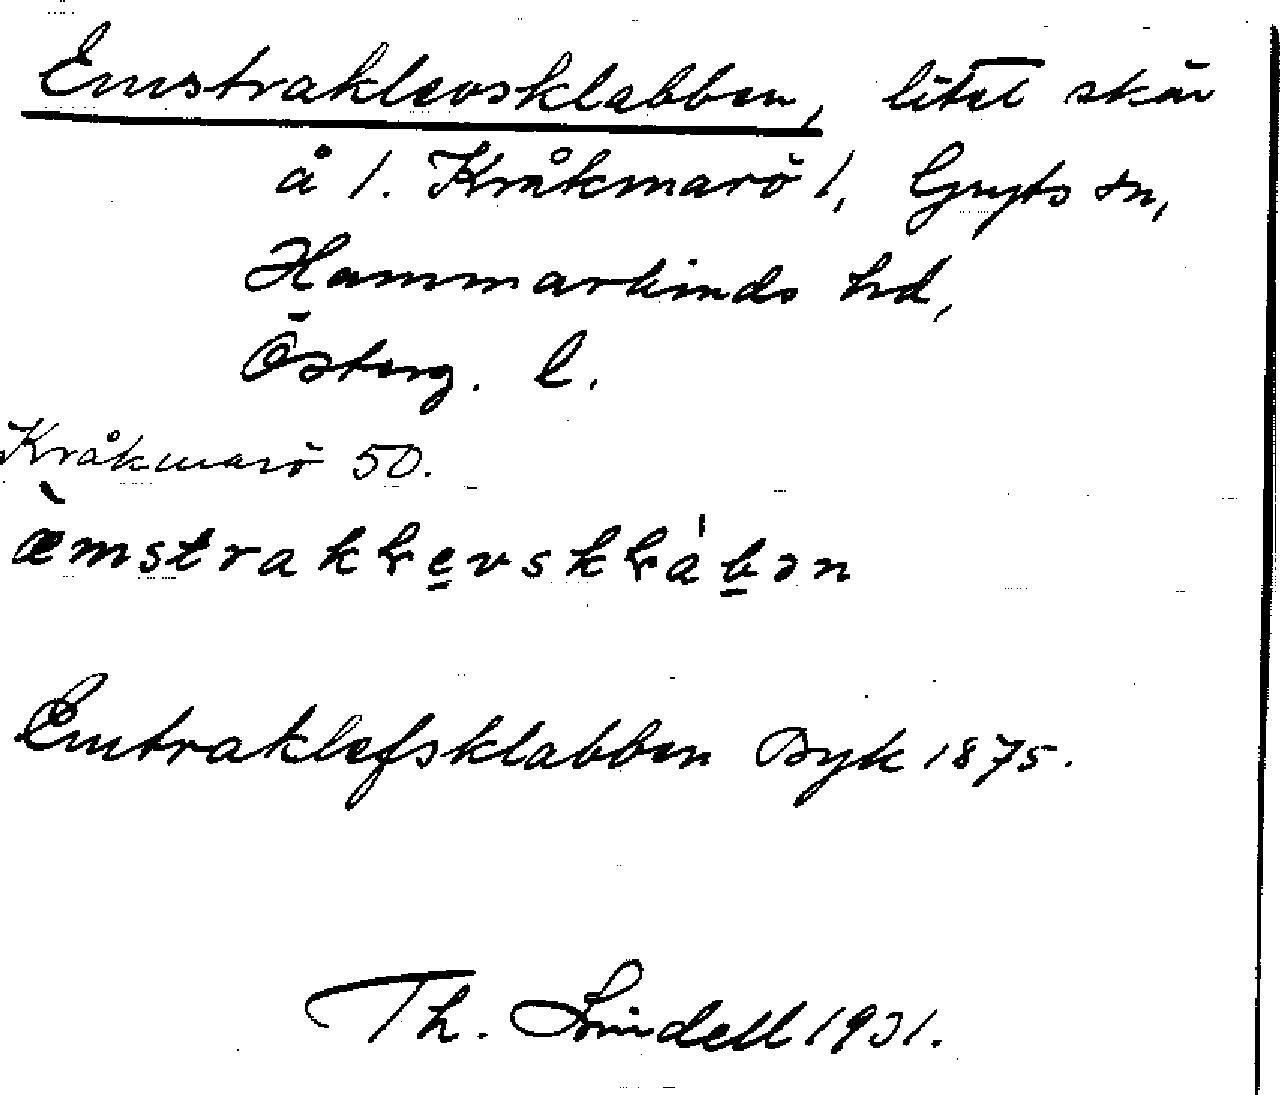 Emstraklevsklabben, litet skär
å 1. Kråkmarö 1, Gryts sn,
Hammarkinds hd,
Österg. l.
Kråkmarö 50.
æ̀mstraklevsklábən
Emtraklefsklabben Byk 1875.
Th. Lindell 1931.